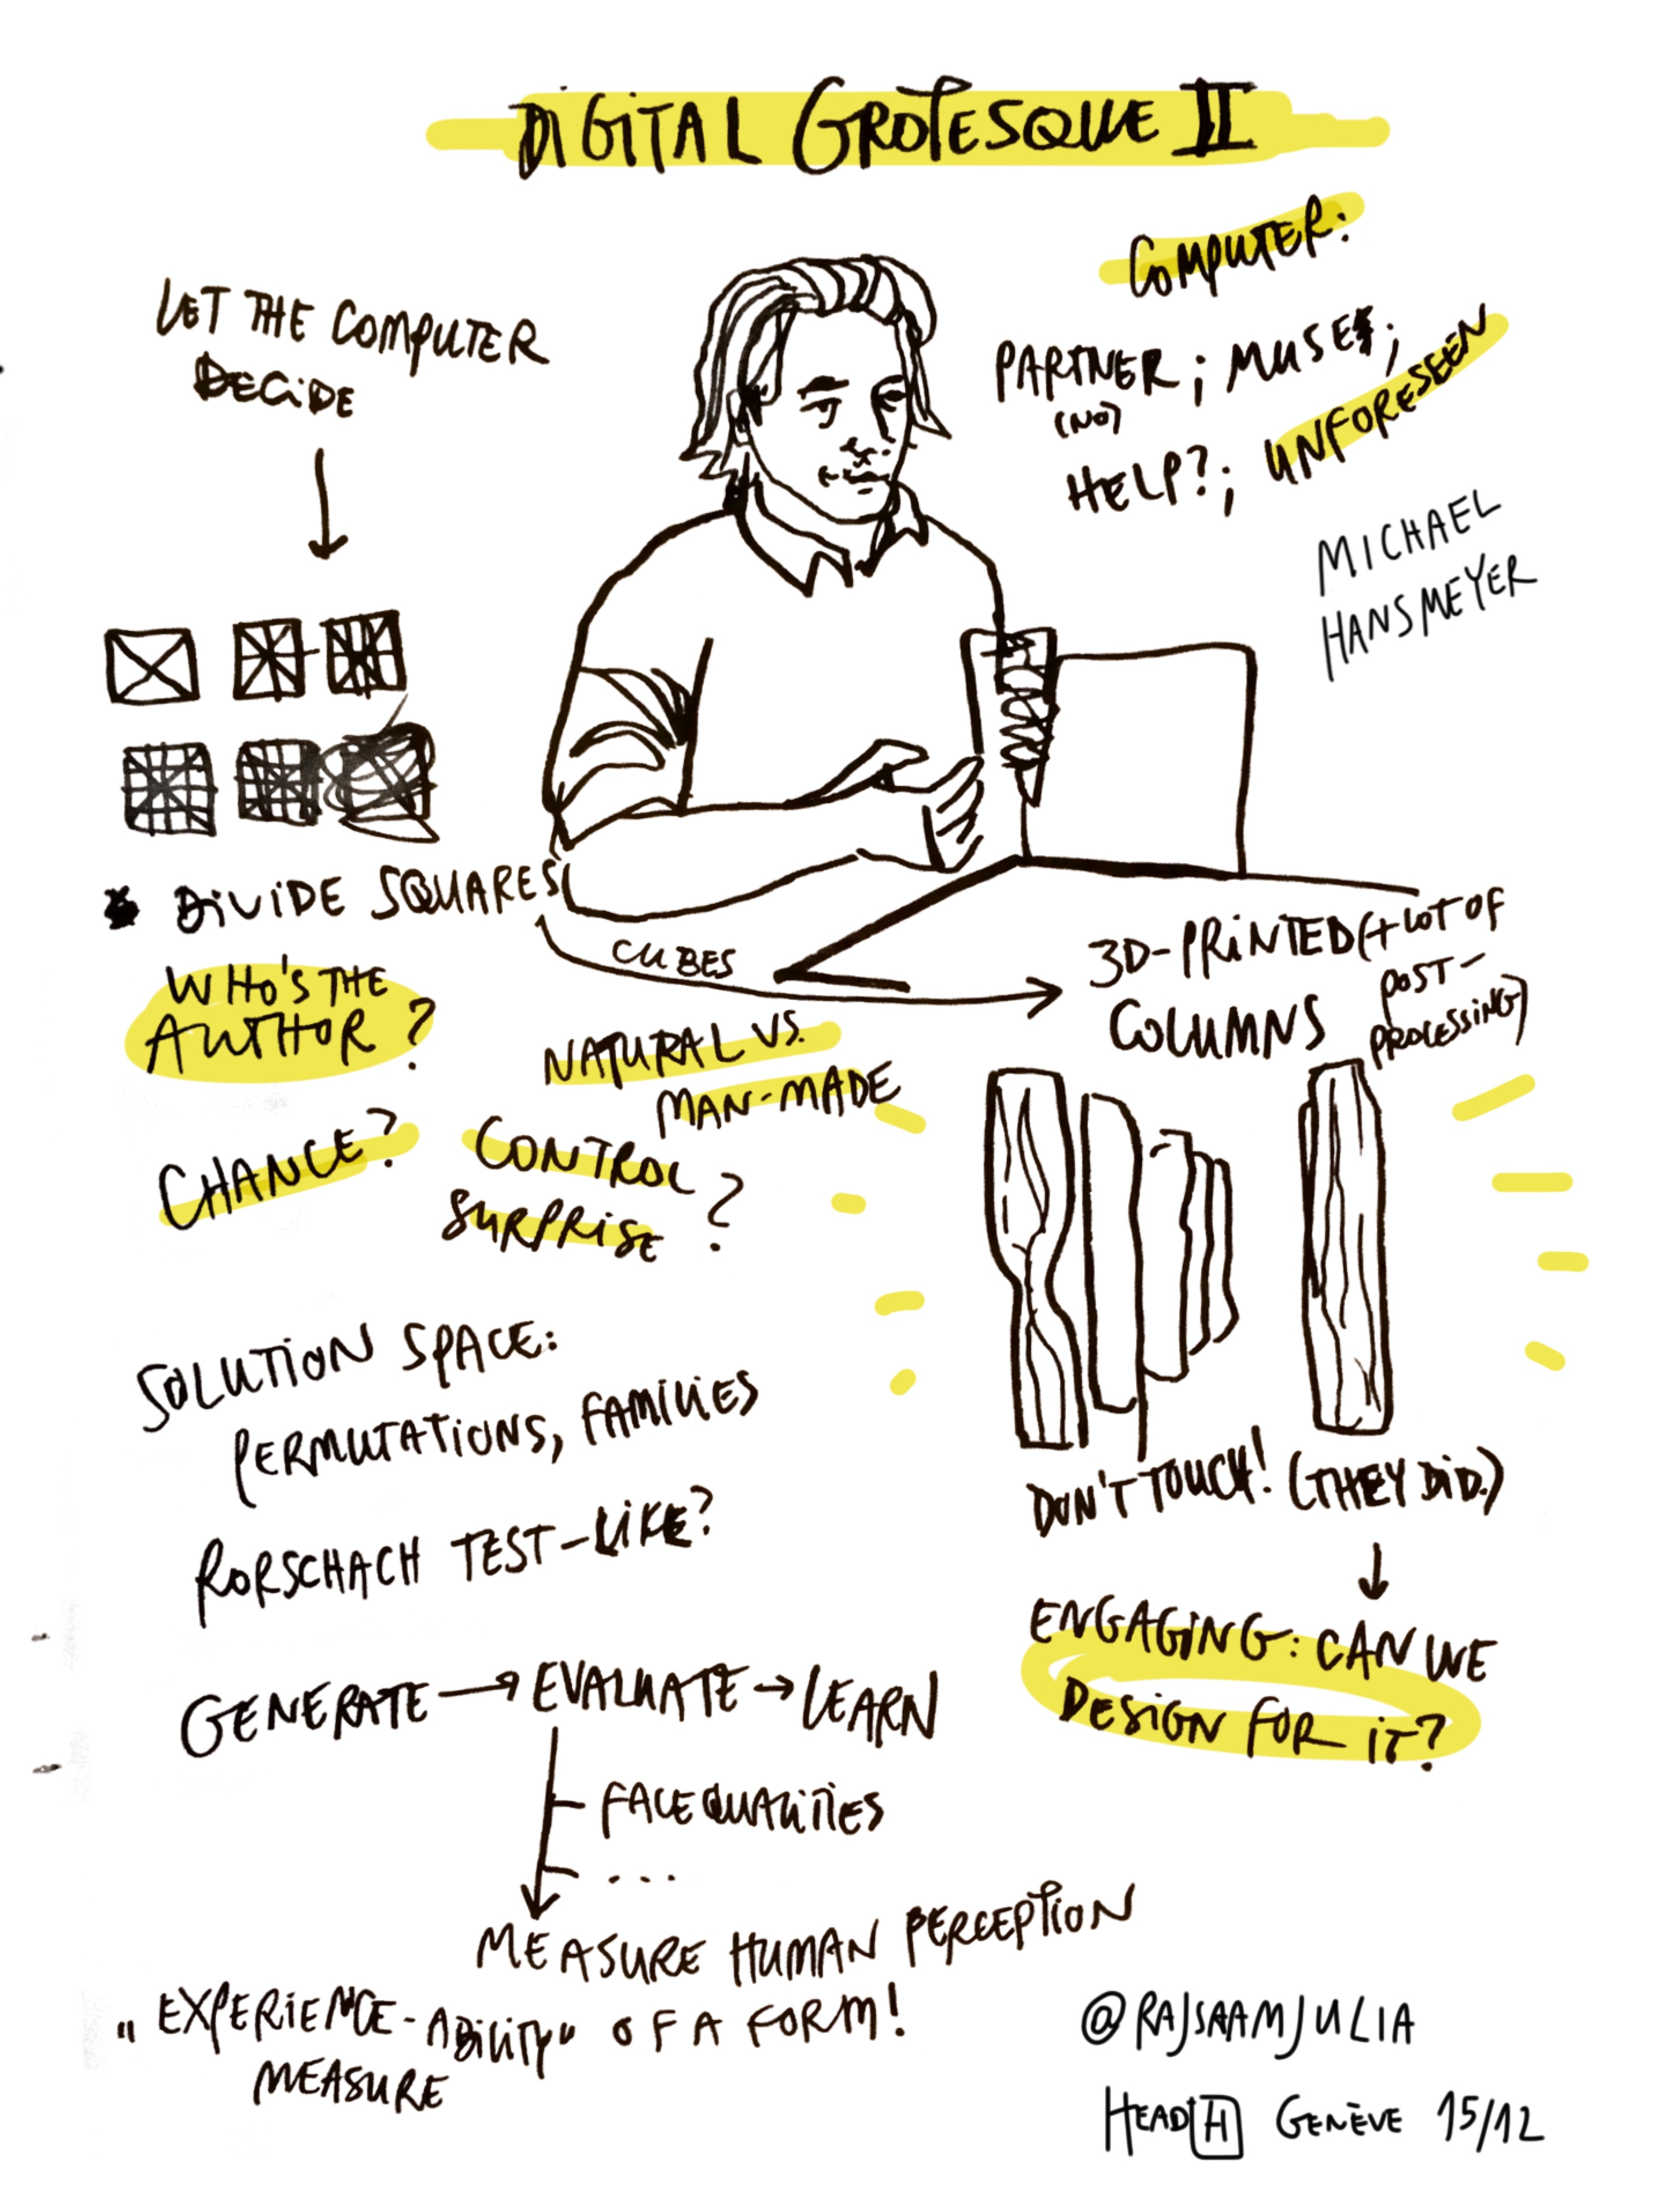 DIGITAL GROTESQUE II
COMPUTER:
PARTNER; MUSE;
(NO)
HELP?; UNFORESEEN
MICHAEL
HANSMEYER
LET THE COMPUTER
DECIDE
DIVIDE SQUARES
CUBES
3D-PRINTED (+ LOT OF
POST-
PROCESSING)
COLUMNS
WHO'S THE
AUTHOR?
NATURAL VS.
MAN-MADE
CHANCE?
CONTROL
SURPRISE ?
SOLUTION SPACE:
PERMUTATIONS, FAMILIES
RORSCHACH TEST-LIKE?
DON'T TOUCH! (THEY DID.)
ENGAGING: CAN WE
DESIGN FOR IT?
GENERATE → EVALUATE → LEARN
FACE QUALITIES
...
MEASURE HUMAN PERCEPTION
"EXPERIENCE-ABILITY" OF A FORM!
MEASURE
@RAJSAAMJULIA
HEAD H GENÈVE 15/12